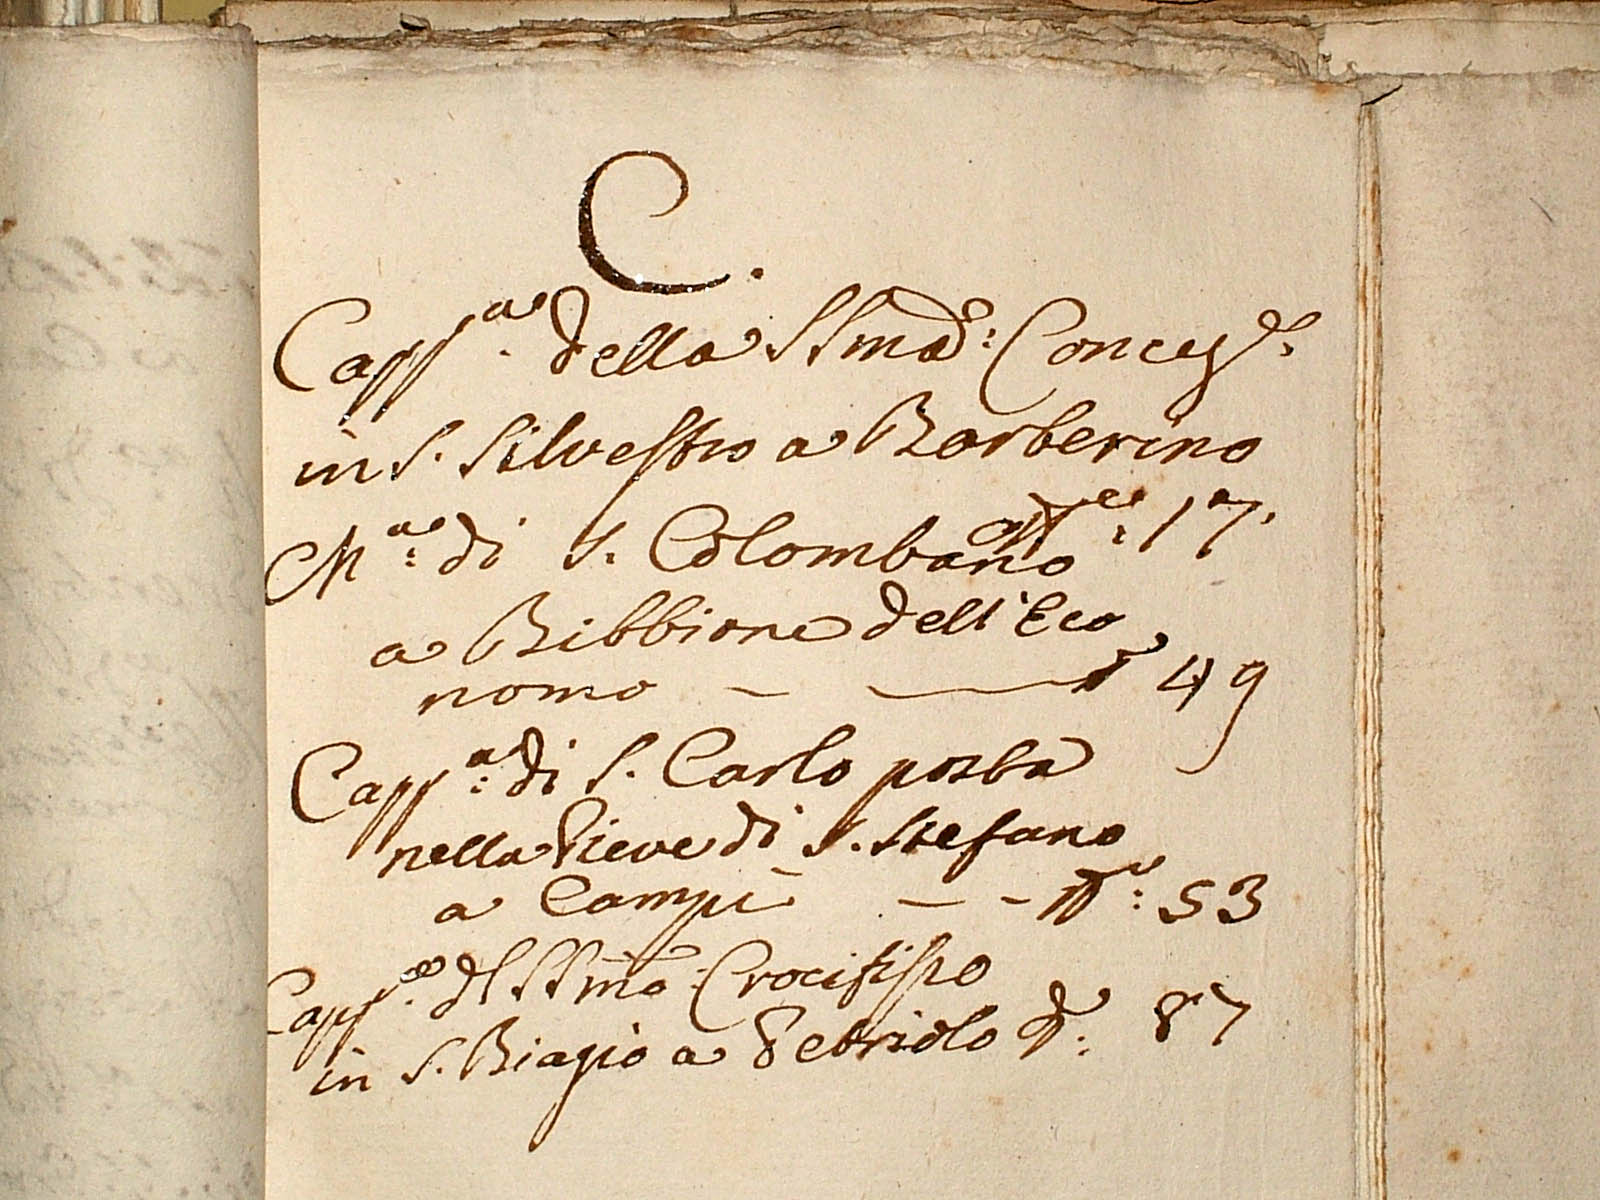 C.
Capp.a della SSma: Concez.e
in S. Silvestro a Barberino
N.o: 17.
Ch.a: di S. Colombano
a Bibbione dell'Eco
nomo - — N.o 49
Capp.a: di S. Carlo posta
nella Pieve di S. Stefano
a Campi - - N.o: 53
Capp.a del SSmo Crocifisso
in S. Biagio a Petriolo N.o: 87